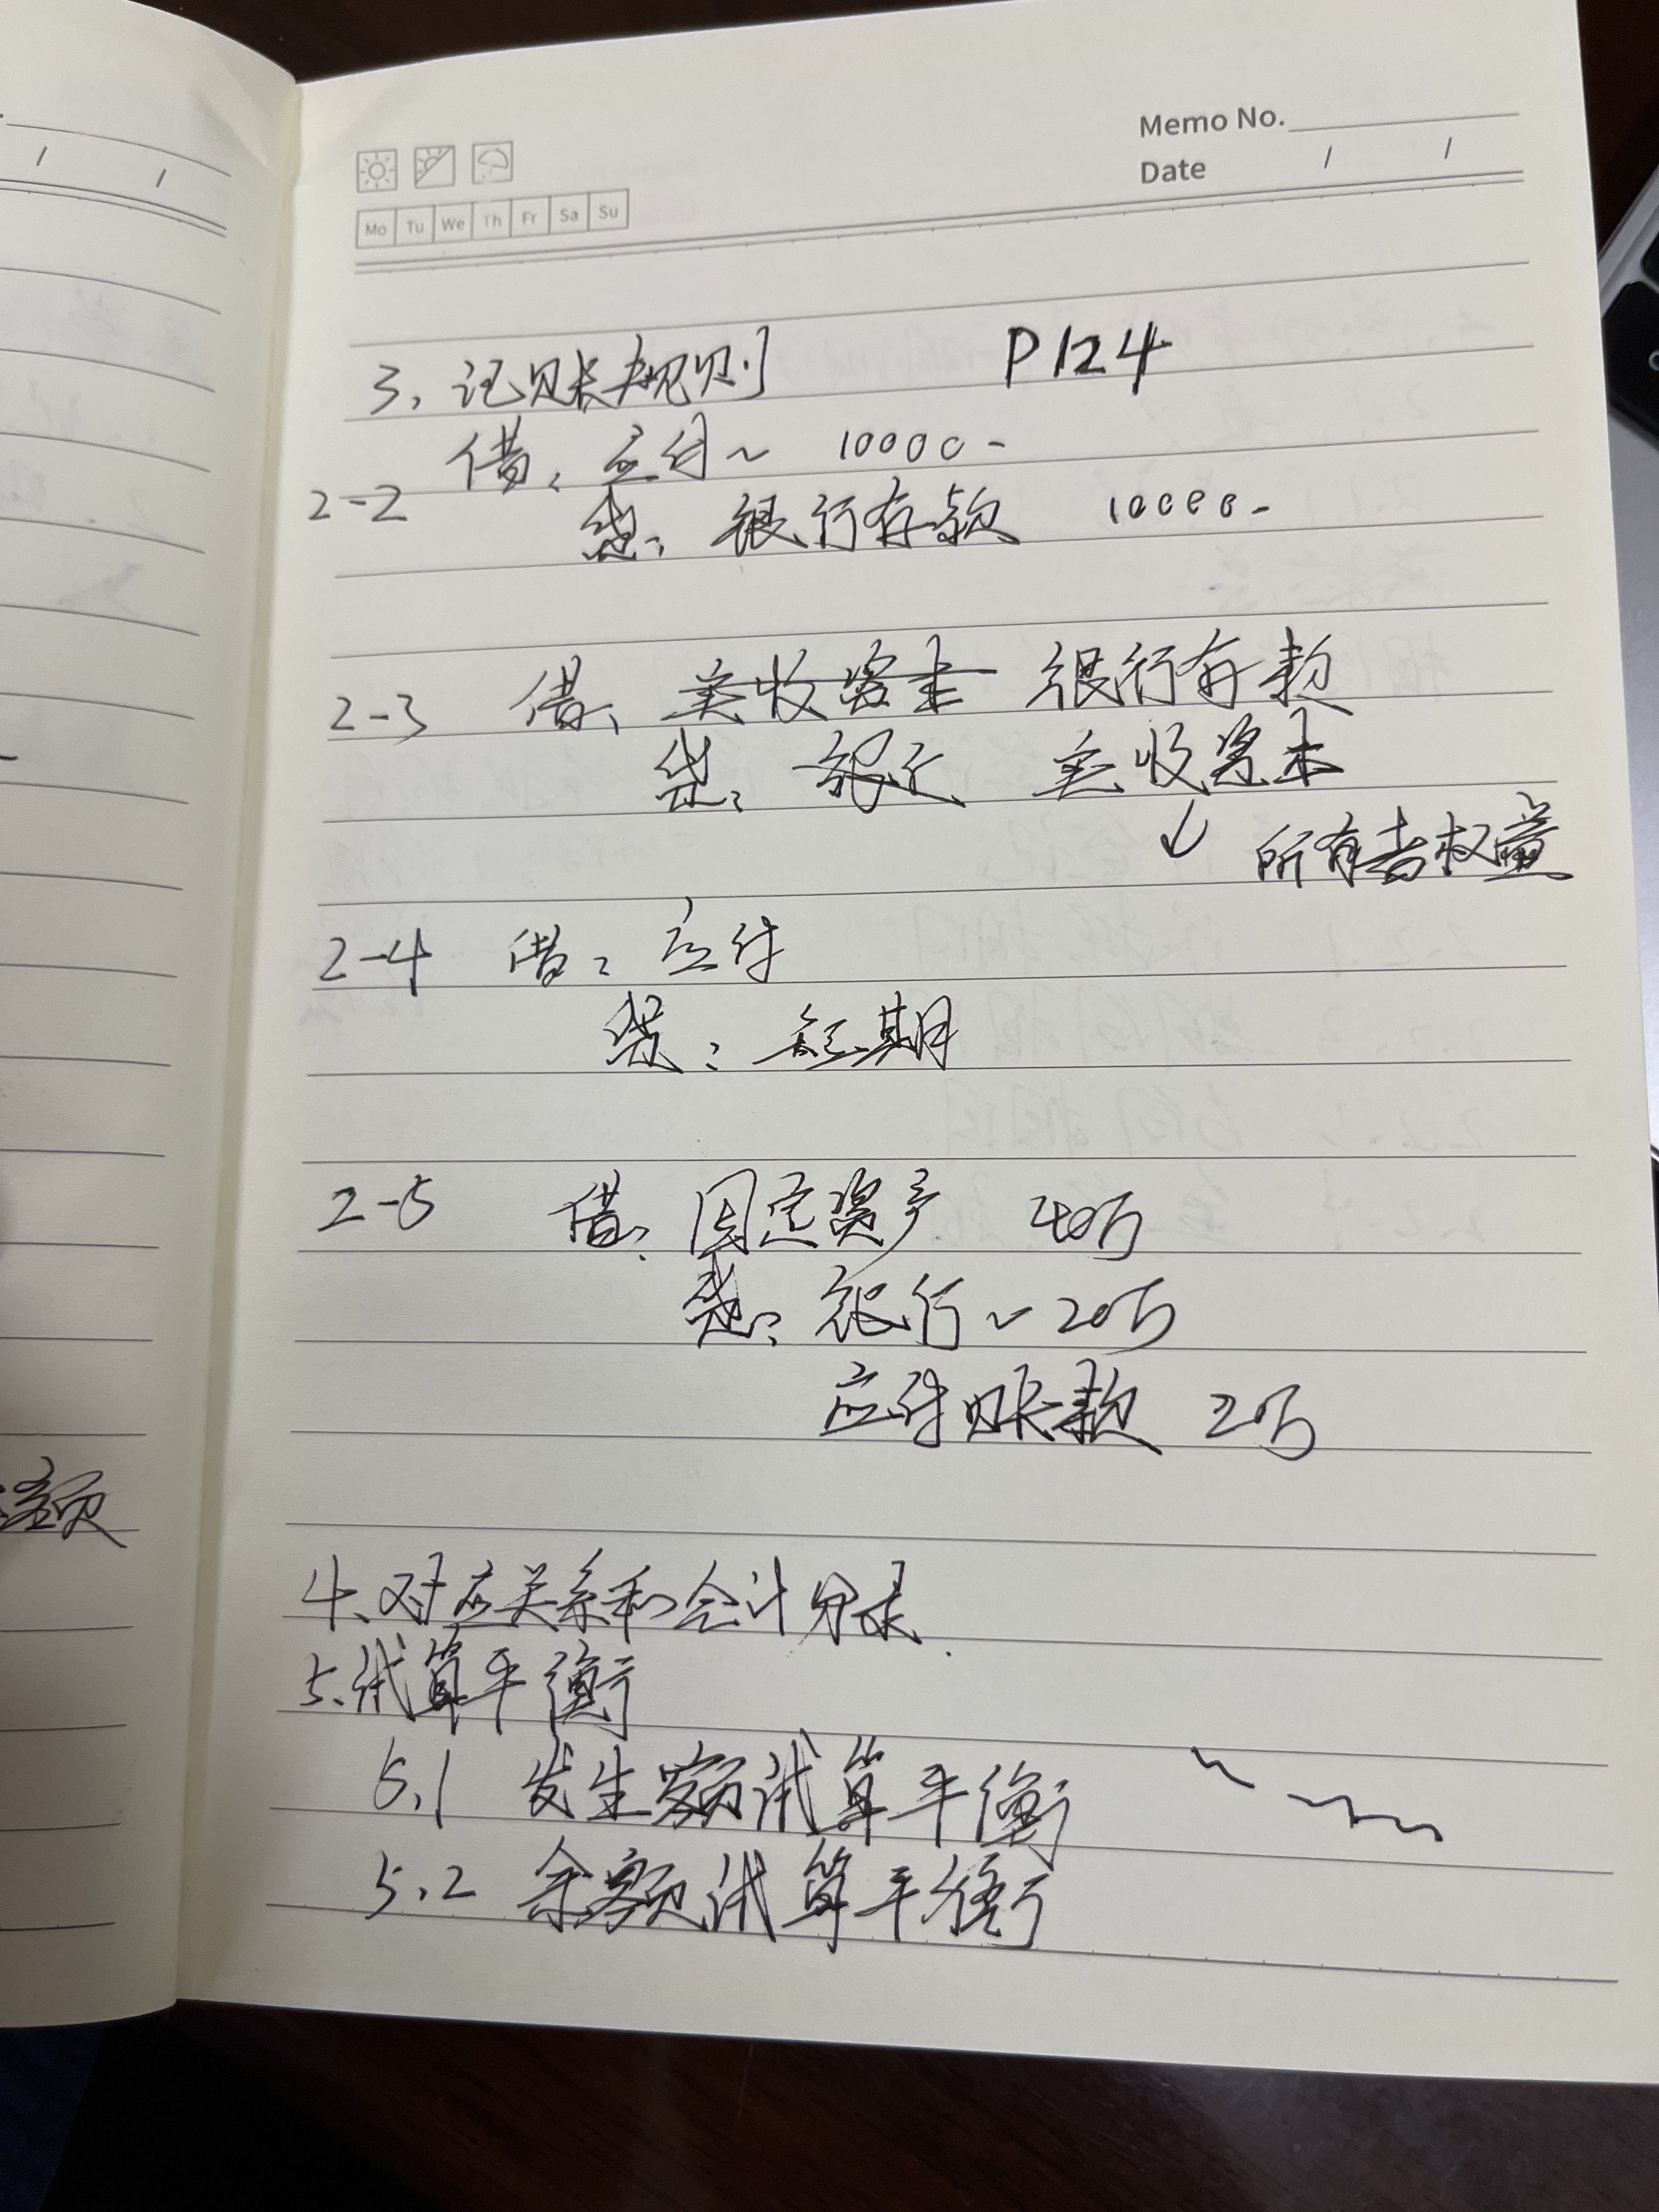 Memo No.
Date / /
Mo Tu We Th Fr Sa Su
3、记账规则 P124
借：应付~ 10000-
2-2 贷：银行存款 10000-
2-3 借：实收资本 银行存款
贷：银行 实收资本
↓ 所有者权益
2-4 借：应付
贷：短期
2-5 借：固定资产 40万
贷：银行~20万
应付账款 20万
4、对应关系和会计分录.
5、试算平衡
5.1 发生额试算平衡
5.2 余额试算平衡
额